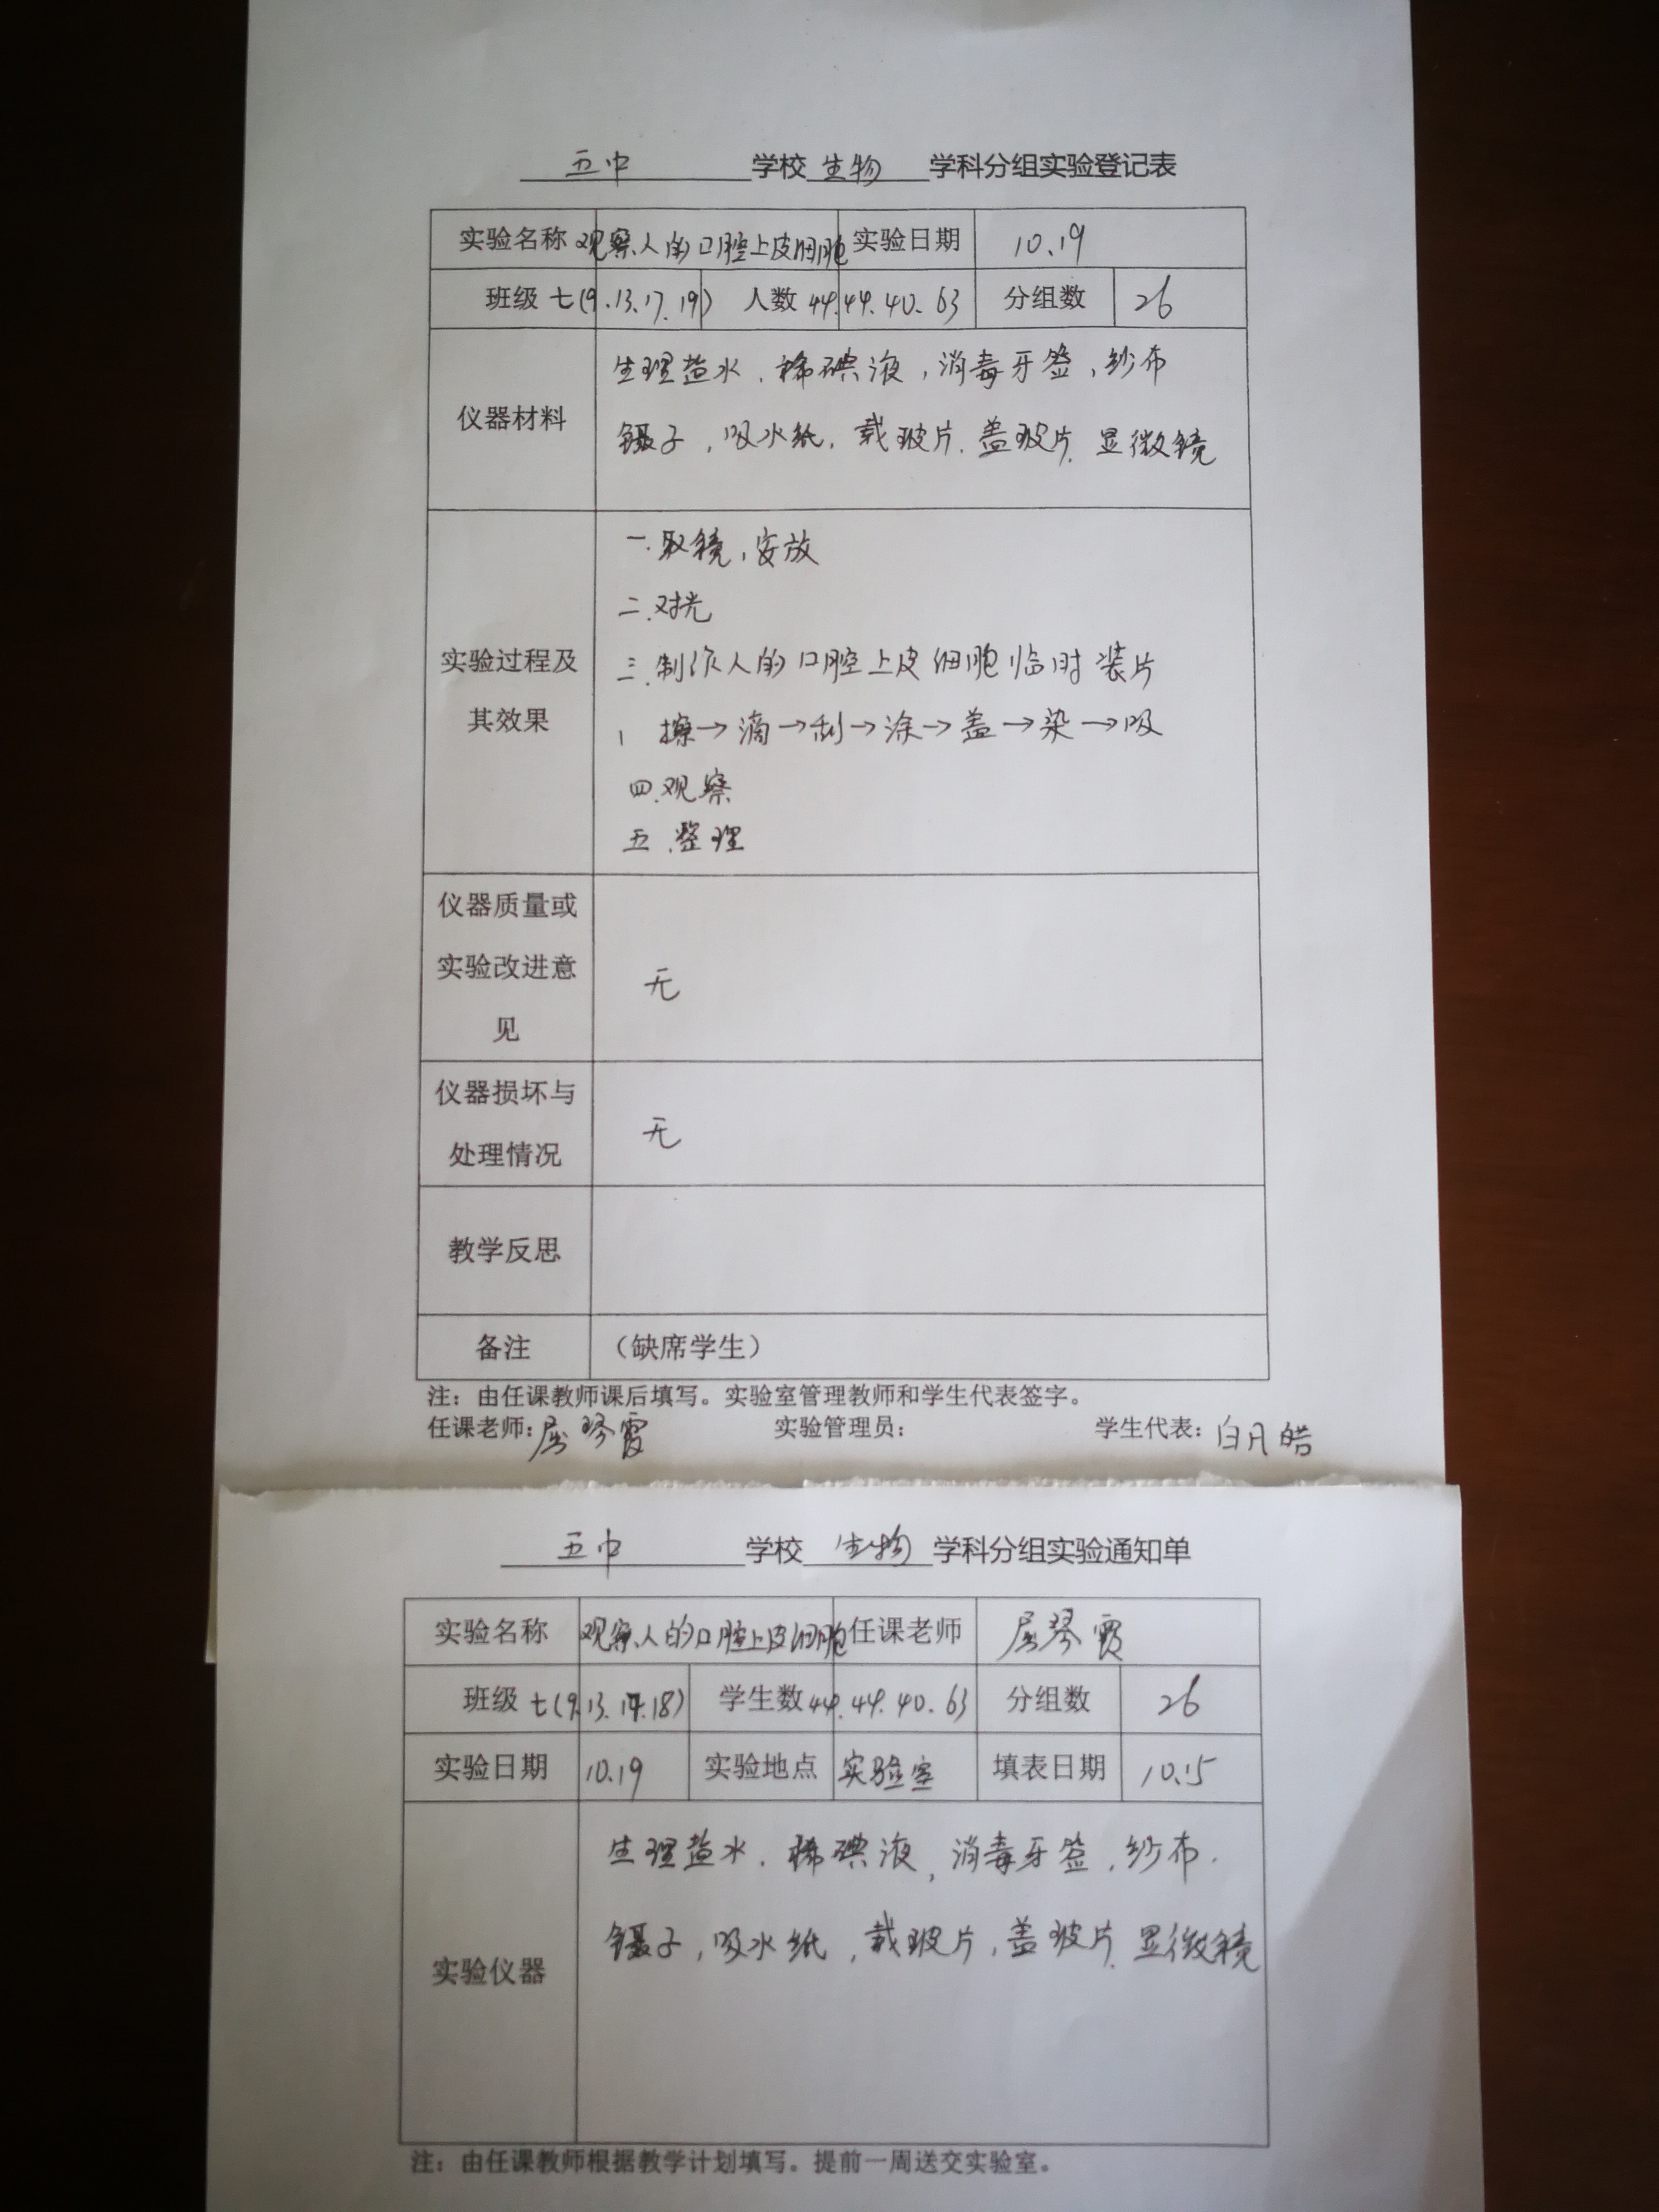 五中 学校 生物 学科分组实验登记表
实验名称 观察人的口腔上皮细胞 实验日期 10.19
班级 七(9.13.17.19) 人数 44.44.40.63 分组数 26
仪器材料
生理盐水、稀碘液，消毒牙签，纱布
镊子，吸水纸，载玻片.盖玻片.显微镜
实验过程及
其效果
一.取镜，安放
二.对光
三.制作人的口腔上皮细胞临时装片
1 擦→滴→刮→涂→盖→染→吸
四.观察
五.整理
仪器质量或
实验改进意
见
无
仪器损坏与
处理情况
无
教学反思
备注 （缺席学生）
注：由任课教师课后填写。实验室管理教师和学生代表签字。
任课老师：屈琴霞 实验管理员： 学生代表：白凡皓
五中 学校 生物 学科分组实验通知单
实验名称 观察人的口腔上皮细胞 任课老师 屈琴霞
班级 七(9.13.17.18) 学生数 44.44.40.63 分组数 26
实验日期 10.19 实验地点 实验室 填表日期 10.15
实验仪器
生理盐水.稀碘液，消毒牙签，纱布.
镊子，吸水纸，载玻片，盖玻片.显微镜
注：由任课教师根据教学计划填写。提前一周送交实验室。